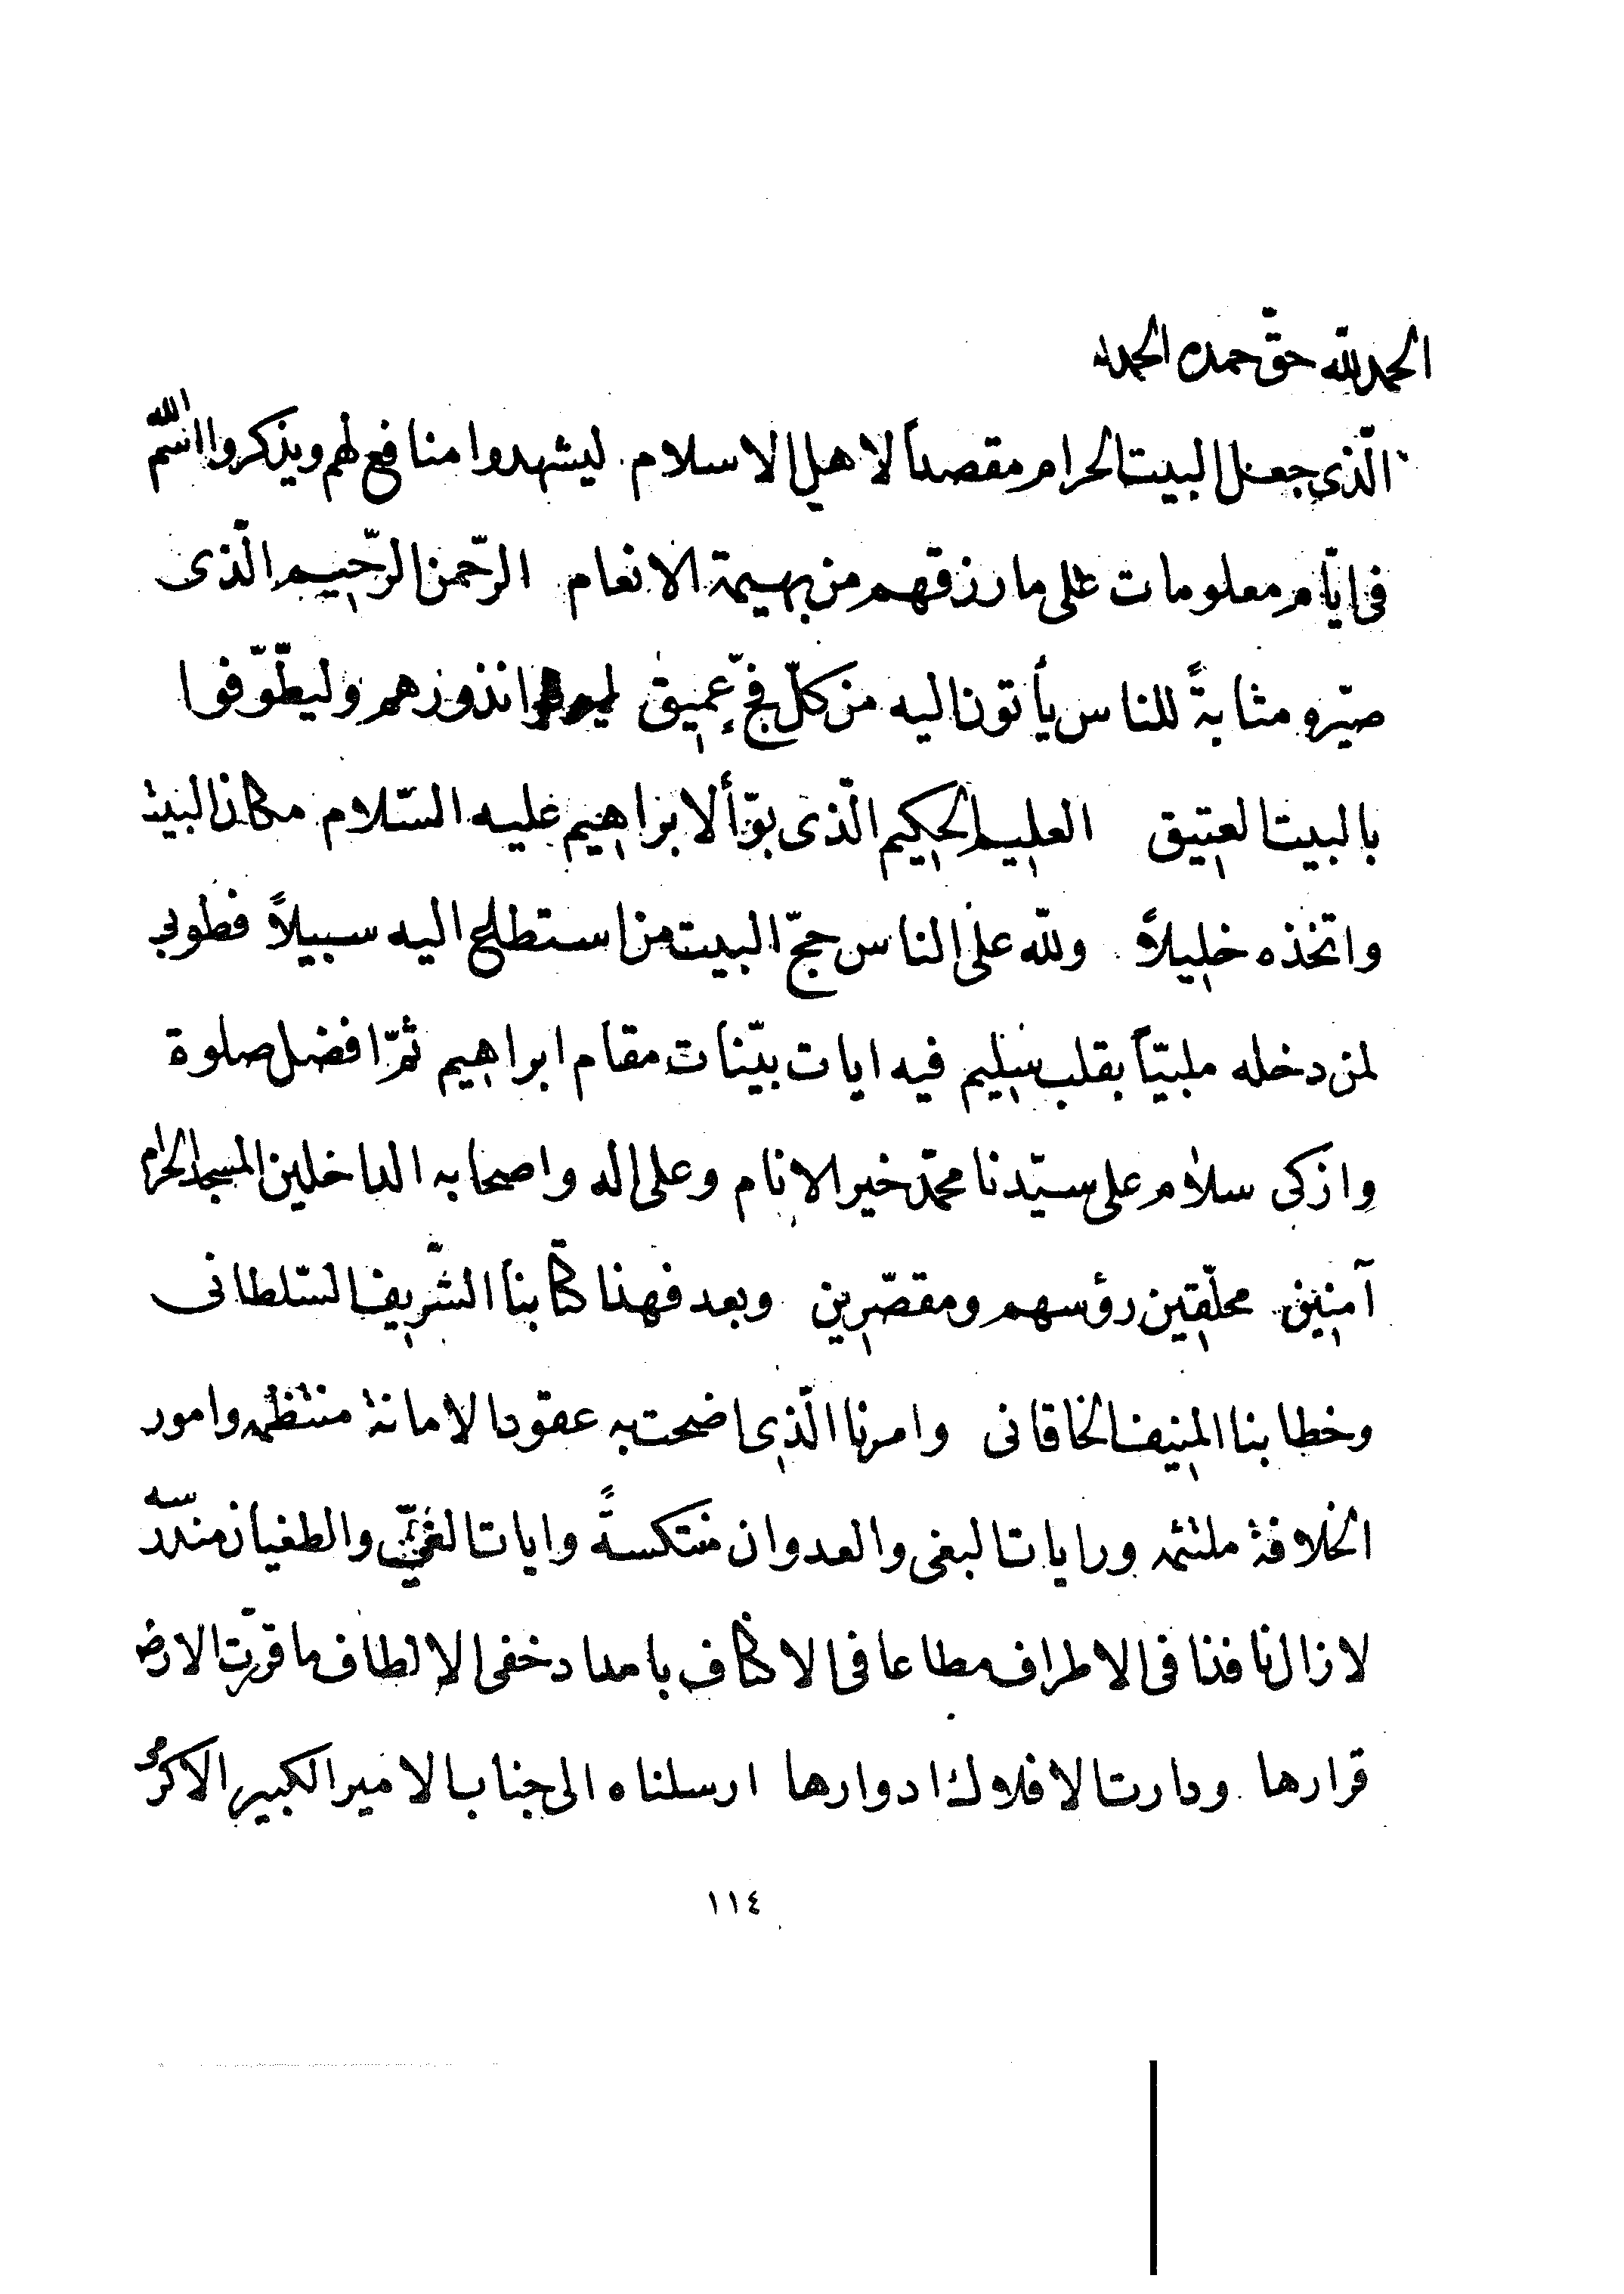 الحمد لله حقّ حمده الحمد لله
الّذى جعل البيت الحرام مقصداً لاهل الاسلام ليشهدوا منافع لهم ويذكروا اسم الله
فى ايّام معلومات على ما رزقهم من بهيمة الانعام الرّحمن الرّحيم الّذى
صيّره مثابةً للناس يأتون اليه من كلّ فجّ عميق ليوفوا نذورهم وليطّوّفوا
بالبيت العتيق العليم الحكيم الّذى بوّأ لابراهيم عليه السّلام مكان البيت
واتخذه خليلاً ولله على الناس حجّ البيت من استطاع اليه سبيلاً فطوبى
لمن دخله ملبيّاً بقلب سليم فيه ايات بيّنات مقام ابراهيم ثمّ افضل صلوة
وازكى سلام على سيّدنا محمّد خير الانام وعلى اله واصحابه الداخلين المسجد الحرام
آمنين محلّقين رؤسهم ومقصّرين وبعد فهذا كتابنا الشّريف السّلطانى
وخطابنا المنيف الخاقانى وامرنا الّذى اضحت به عقود الامانة منتظمه وامور
الخلافة ملتئمه ورايات البغى والعدوان منتكسةً وايات الغىّ والطغيان مندرسه
لا زال نافذا فى الاطراف مطاعا فى الاكناف بامداد خفى الالطاف ما قرّت الارض
قرارها ودارت الافلاك ادوارها ارسلناه الى جناب الامير الكبير الاكرمى
١١٤